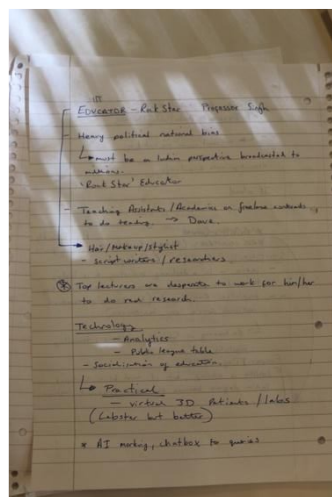 EDUCATOR - Rock Star Professor Singh
- Heavy political national bias
must be a
perspective broadcasted to
millions.
'Rock Star' Education
- Teaching Assistants / Academics on freelance contracts
to do teaching. → Dave.
Hair/Makeup/stylist
- Script writers / researchers
* Top lecturers are desperate to work for him/her
to do research.
Technology
- Analytics
- Public league table
- Socialisation of education.
Practical
- virtual 3D Patients / labs
(Labster but better)
* AI marking, chatbox for queries